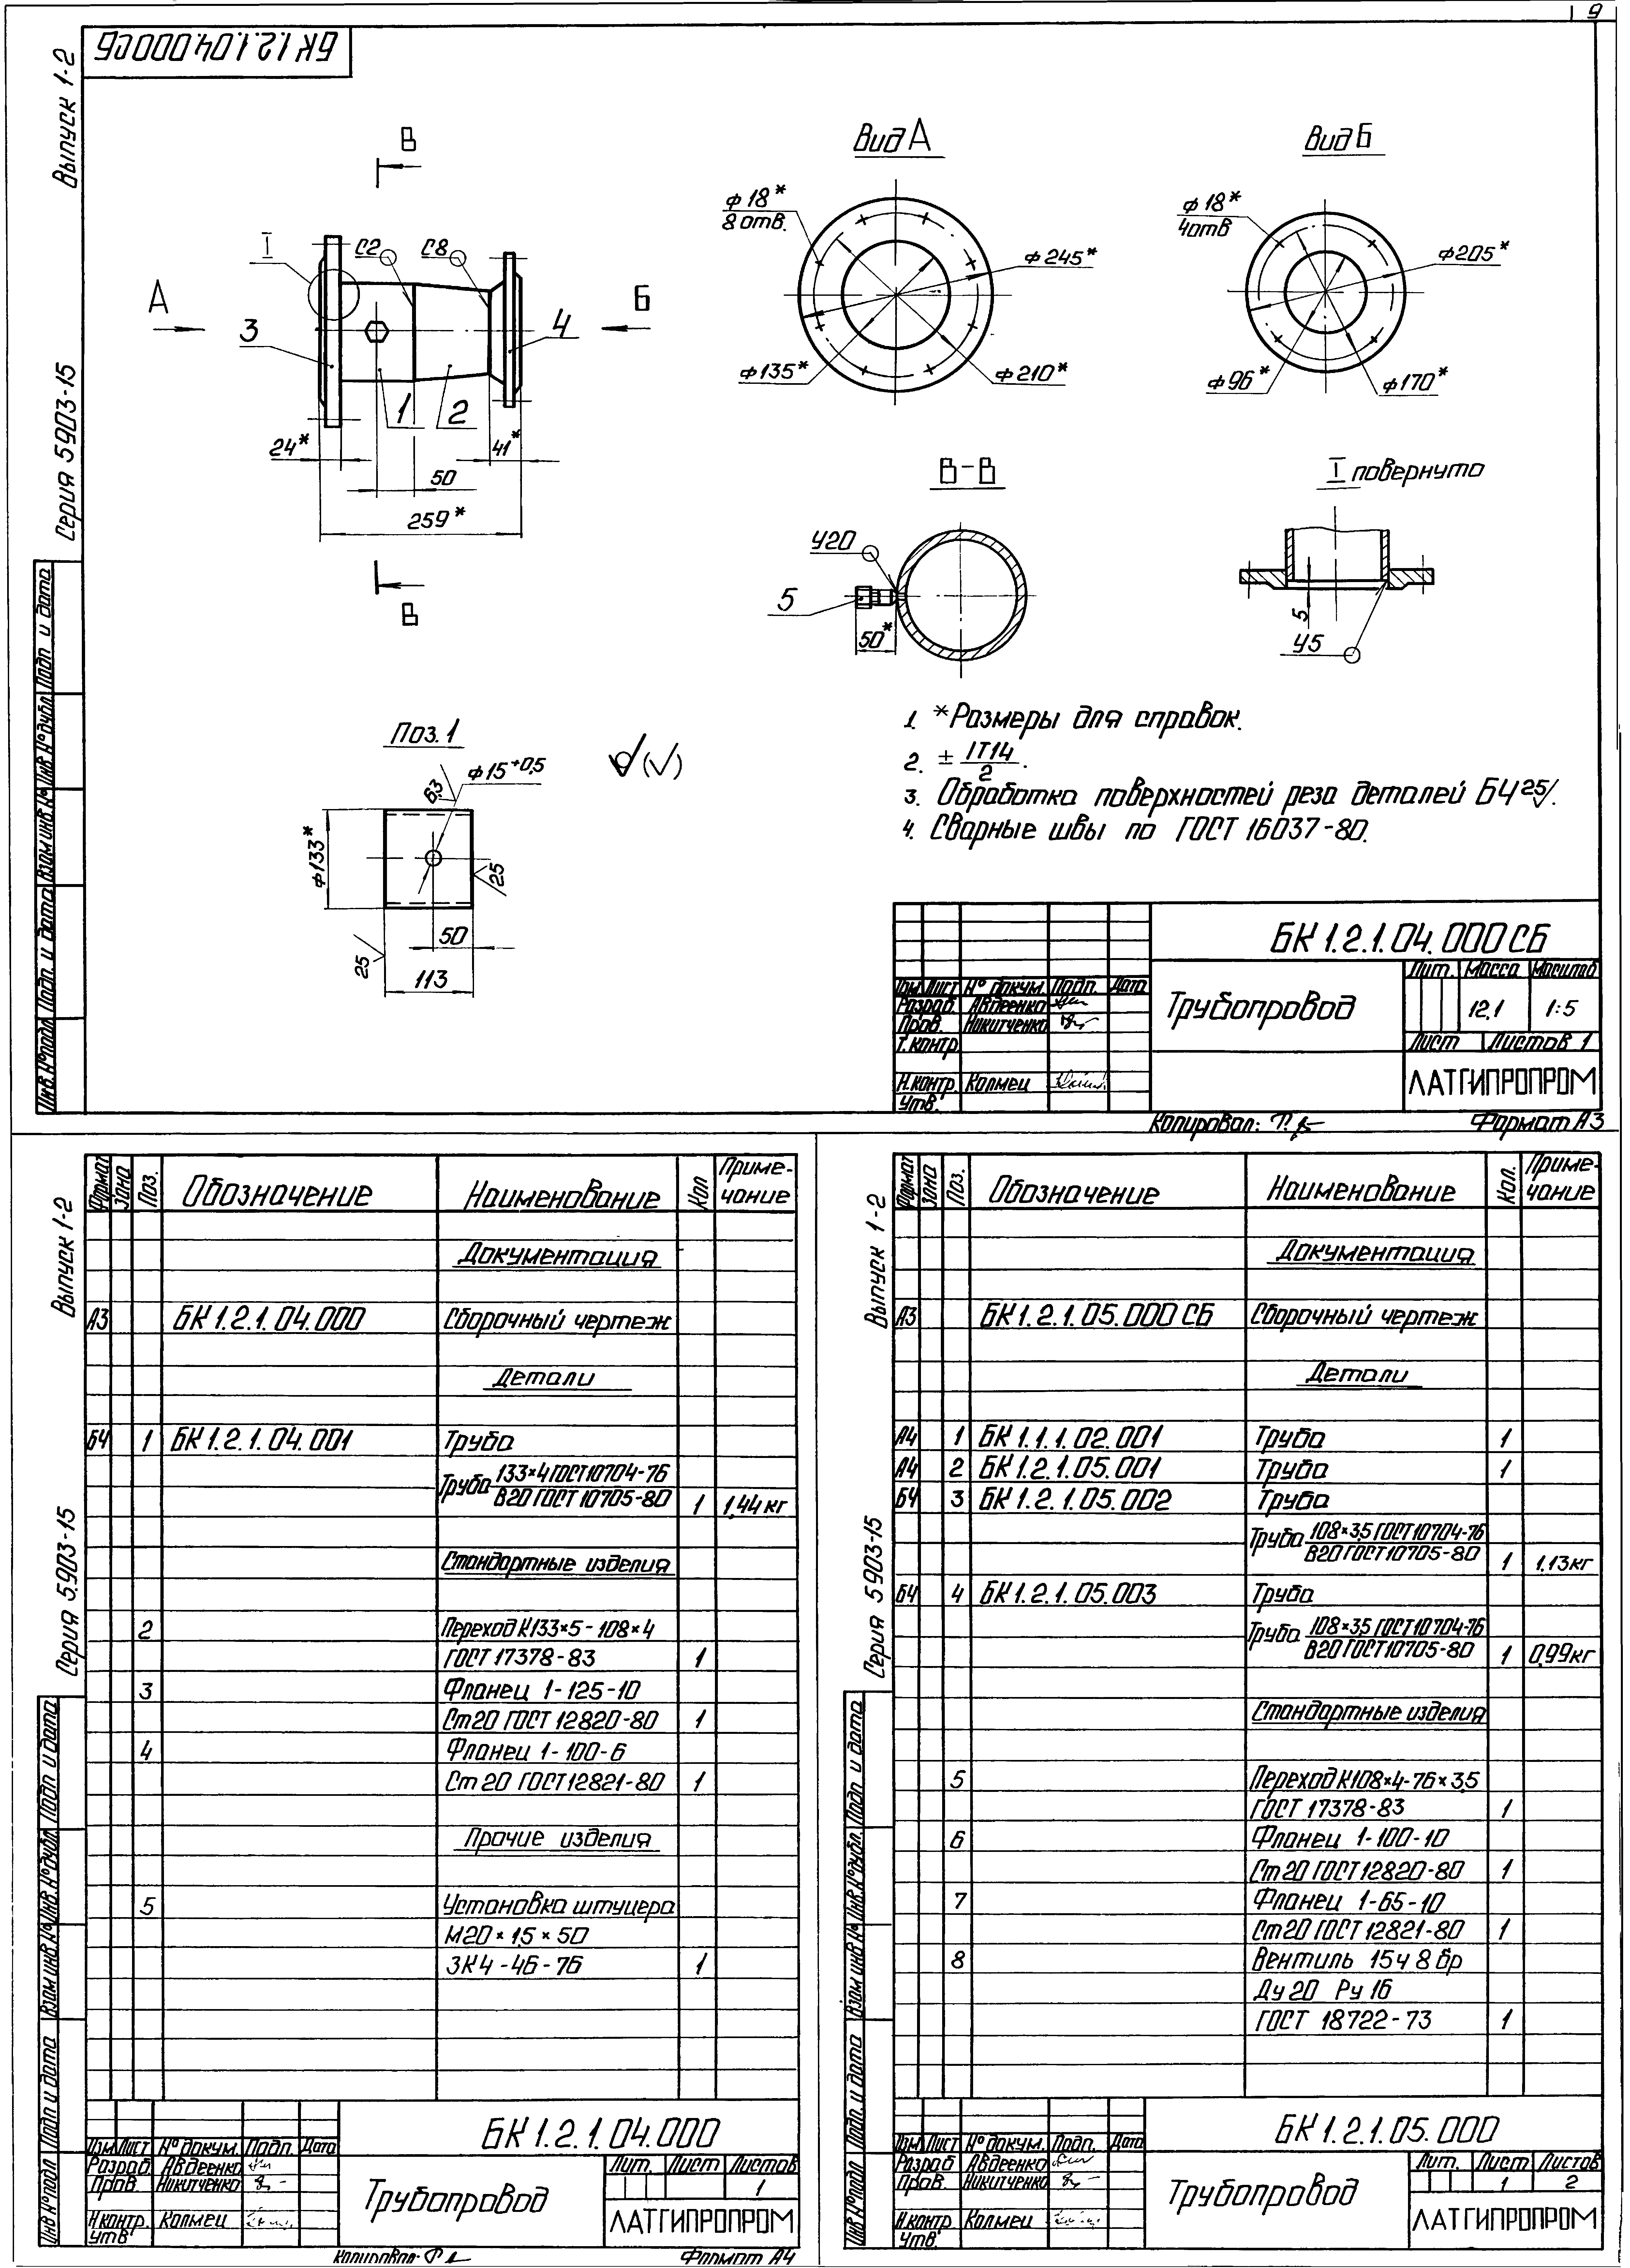 9
БК 1.2.1.04.000СБ
Выпуск 1-2
Серия 5903-15
В
I
С2
С8
А
Б
3
4
1
2
24*
41*
50
259*
В
Вид А
ф18*
8 отв.
ф245*
ф135*
ф210*
Вид Б
ф18*
4отв
ф205*
ф96*
ф170*
В-В
У20
5
50*
I повернуто
5
У5
Поз. 1
6,3
ф15+0,5
ф133*
25
25
50
113
1. *Размеры для справок.
2. ± IT14/2.
3. Обработка поверхностей реза деталей БЧ 25/.
4. Сварные швы по ГОСТ 16037-80.
Инв.№подл Подп. и дата Взам инв.№ Инв.№дубл. Подп и дата
БК 1.2.1.04.000СБ
Изм Лист № докум. Подп. Дата
Разраб. Авдеенко
Пров. Никитченко
Т.контр
Н.контр. Колмец
Утв.
Трубопровод
Лит. Масса Масштаб
12,1 1:5
Лист Листов 1
ЛАТГИПРОПРОМ
Копировал:
Формат А3
Выпуск 1-2
Серия 5903-15
Формат Зона Поз. Обозначение Наименование Кол Примечание
Документация
А3 БК 1.2.1.04.000 Сборочный чертеж
Детали
БЧ 1 БК 1.2.1.04.001 Труба
Труба 133×4 ГОСТ10704-76
В20 ГОСТ 10705-80 1 1,44кг
Стандартные изделия
2 Переход К133×5-108×4
ГОСТ 17378-83 1
3 Фланец 1-125-10
Ст20 ГОСТ 12820-80 1
4 Фланец 1-100-6
Ст20 ГОСТ12821-80 1
Прочие изделия
5 Установка штуцера
М20×15×50
ЗК4-46-76 1
Инв №подл Подп и дата Взам инв №Инв.№дубл. Подп и дата
БК 1.2.1.04.000
Изм Лист № докум. Подп. Дата
Разраб. Авдеенко
Пров. Никитченко
Н контр. Колмец
Утв
Трубопровод
Лит. Лист Листов
1
ЛАТГИПРОПРОМ
Копировал:
Формат А4
Выпуск 1-2
Серия 5903-15
Формат Зона Поз. Обозначение Наименование Кол. Примечание
Документация
А3 БК 1.2.1.05.000 СБ Сборочный чертеж
Детали
А4 1 БК 1.1.1.02.001 Труба 1
А4 2 БК 1.2.1.05.001 Труба 1
БЧ 3 БК 1.2.1.05.002 Труба
Труба 108×3,5 ГОСТ10704-76
В20 ГОСТ10705-80 1 1,13кг
БЧ 4 БК 1.2.1.05.003 Труба
Труба 108×3,5 ГОСТ10704-76
В20 ГОСТ10705-80 1 0,99кг
Стандартные изделия
5 Переход К108×4-76×3,5
ГОСТ 17378-83 1
6 Фланец 1-100-10
Ст20 ГОСТ12820-80 1
7 Фланец 1-65-10
Ст20 ГОСТ 12821-80 1
8 Вентиль 15ч 8 бр
Ду 20 Ру 16
ГОСТ 18722-73 1
Инв №подл Подп. и дата Взам инв № Инв.№дубл. Подп и дата
БК 1.2.1.05.000
Изм Лист № докум. Подп. Дата
Разраб Авдеенко
Пров. Никитченко
Н.контр. Колмец
Утв.
Трубопровод
Лит. Лист Листов
1 2
ЛАТГИПРОПРОМ